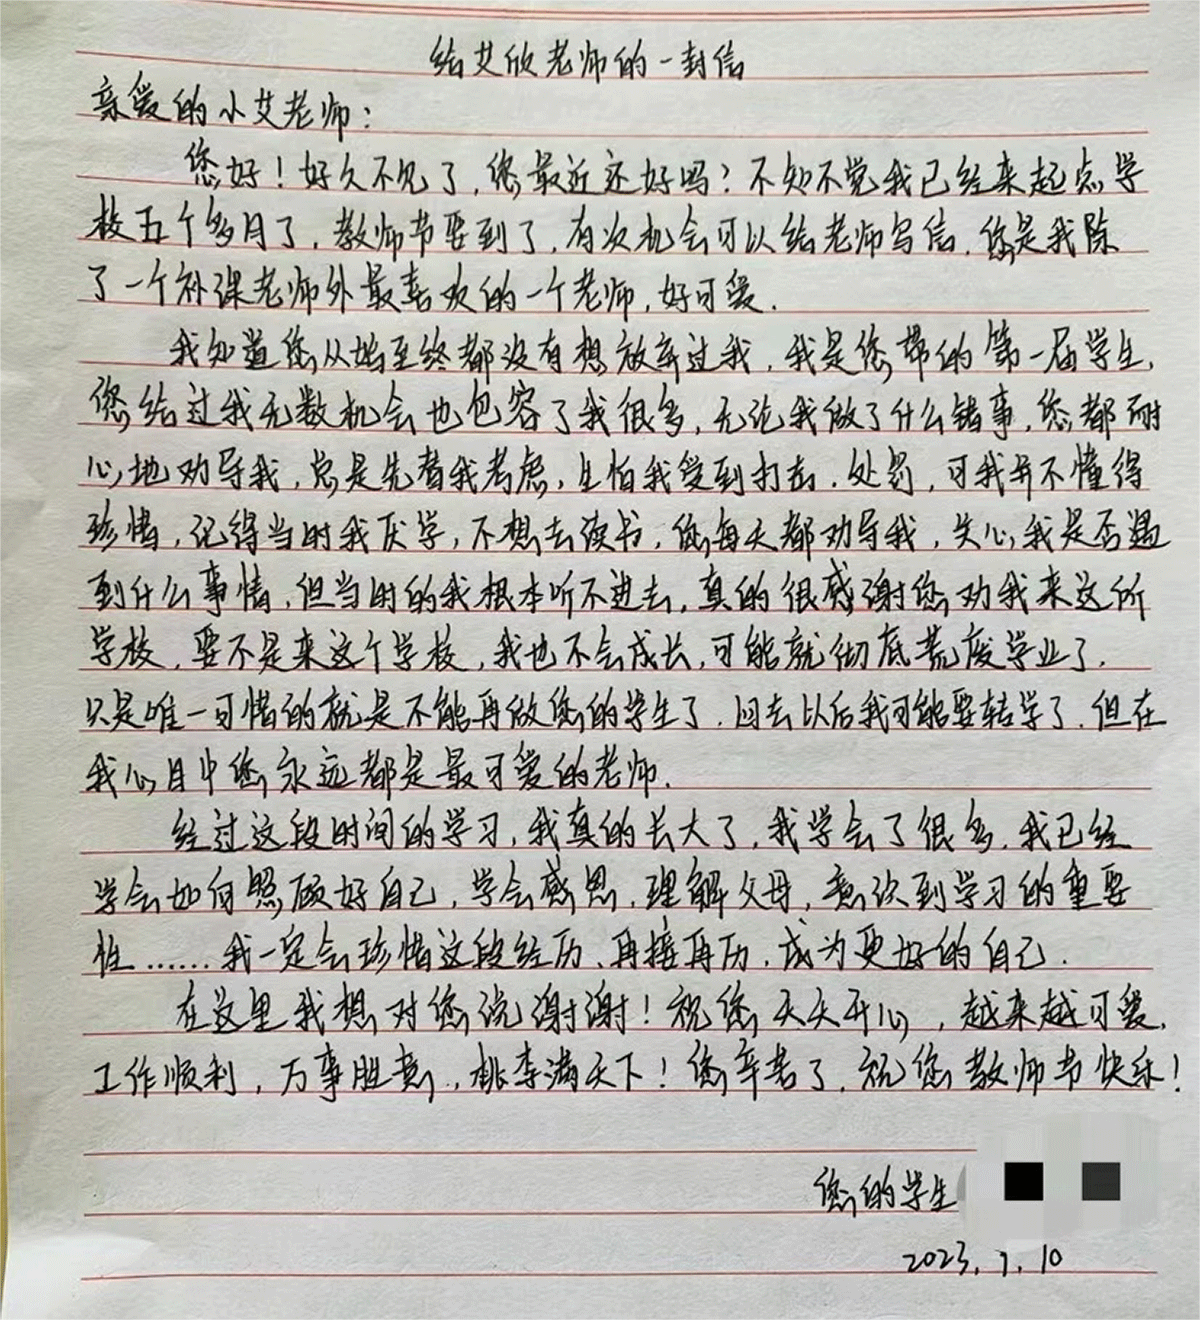 给艾欣老师的一封信
亲爱的小艾老师：
您好！好久不见了，您最近还好吗？不知不觉我已经来起点学
校五个多月了，教师节要到了，有次机会可以给老师写信，您是我除
了一个补课老师外最喜欢的一个老师，好可爱.
我知道您从始至终都没有想放弃过我，我是您带的第一届学生，
您给过我无数机会也包容了我很多，无论我做了什么错事，您都耐
心地劝导我，总是先替我考虑，生怕我受到打击、处罚，可我并不懂得
珍惜，记得当时我厌学，不想去读书，您每天都劝导我，关心我是否遇
到什么事情，但当时的我根本听不进去，真的很感谢您劝我来这所
学校，要不是来这个学校，我也不会成长，可能就彻底荒废学业了.
只是唯一可惜的就是不能再做您的学生了，回去以后我可能要转学了，但在
我心目中您永远都是最可爱的老师.
经过这段时间的学习，我真的长大了，我学会了很多，我已经
学会如何照顾好自己，学会感恩，理解父母，意识到学习的重要
性……我一定会珍惜这段经历、再接再历，成为更好的自己.
在这里我想对您说谢谢！祝您天天开心，越来越可爱，
工作顺利，万事胜意，桃李满天下！您辛苦了，祝您教师节快乐！
您的学生
2023.7.10